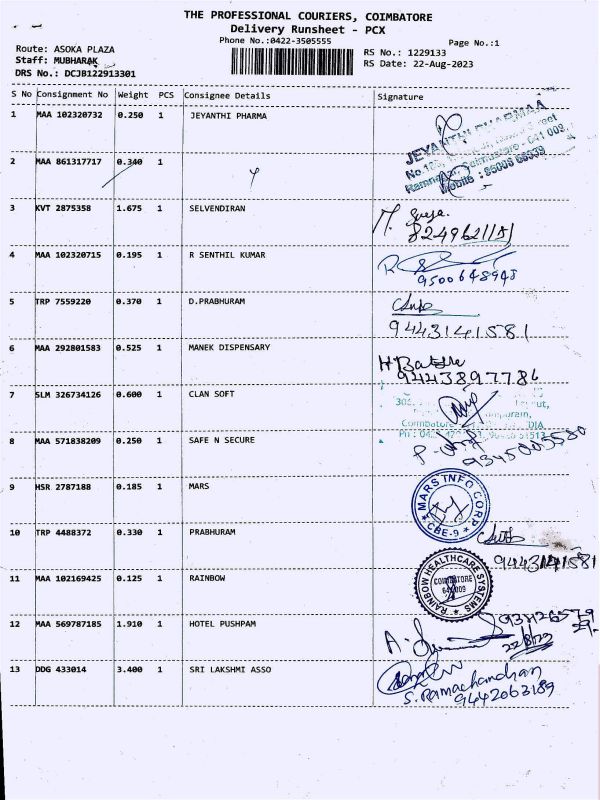 THE PROFESSIONAL COURIERS, COIMBATORE
Delivery Runsheet - PCX
Phone No.:0422-3505555
Page No.:1
Route: ASOKA PLAZA
RS No.: 1229133
Staff: MUBHARAK
RS Date: 22-Aug-2023
DRS No.: DCJB122913301
S No Consignment No Weight PCS Consignee Details Signature
1 MAA 102320732 0.250 1 JEYANTHI PHARMA
JEYANTHI PHARMAA
Mobile : 95008 66939
2 MAA 861317717 0.340 1
3 KVT 2875358 1.675 1 SELVENDIRAN
4 MAA 102320715 0.195 1 R SENTHIL KUMAR
9500648948
5 TRP 7559220 0.370 1 D.PRABHURAM
9443141581
6 MAA 292801583 0.525 1 MANEK DISPENSARY
9443897786
7 SLM 326734126 0.600 1 CLAN SOFT
8 MAA 571838209 0.250 1 SAFE N SECURE
9345005580
9 HSR 2787188 0.185 1 MARS
MARS INFO CORP
CBE-9
10 TRP 4488372 0.330 1 PRABHURAM
9443141581
11 MAA 102169425 0.125 1 RAINBOW
RAINBOW HEALTHCARE SYSTEMS
COIMBATORE
641009
12 MAA 569787185 1.910 1 HOTEL PUSHPAM
22/8/23
13 DDG 433014 3.400 1 SRI LAKSHMI ASSO
S. Ramachandran
9442063189